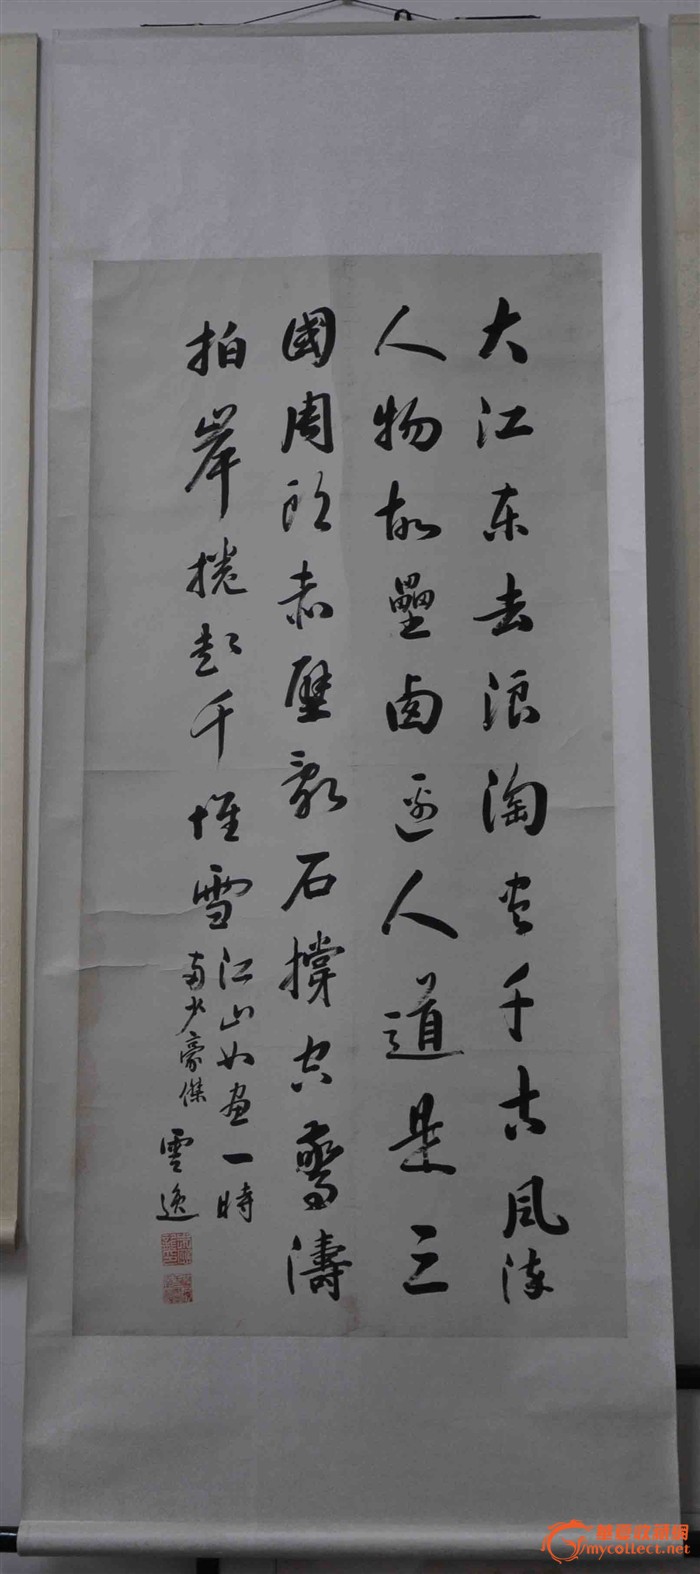 大江東去浪淘盡千古風流
人物故壘西邊人道是三
國周郎赤壁亂石撐空驚濤
拍岸捲起千堆雪
江山如畫一時
多少豪傑
雲逸
華夏收藏網
mycollect.net